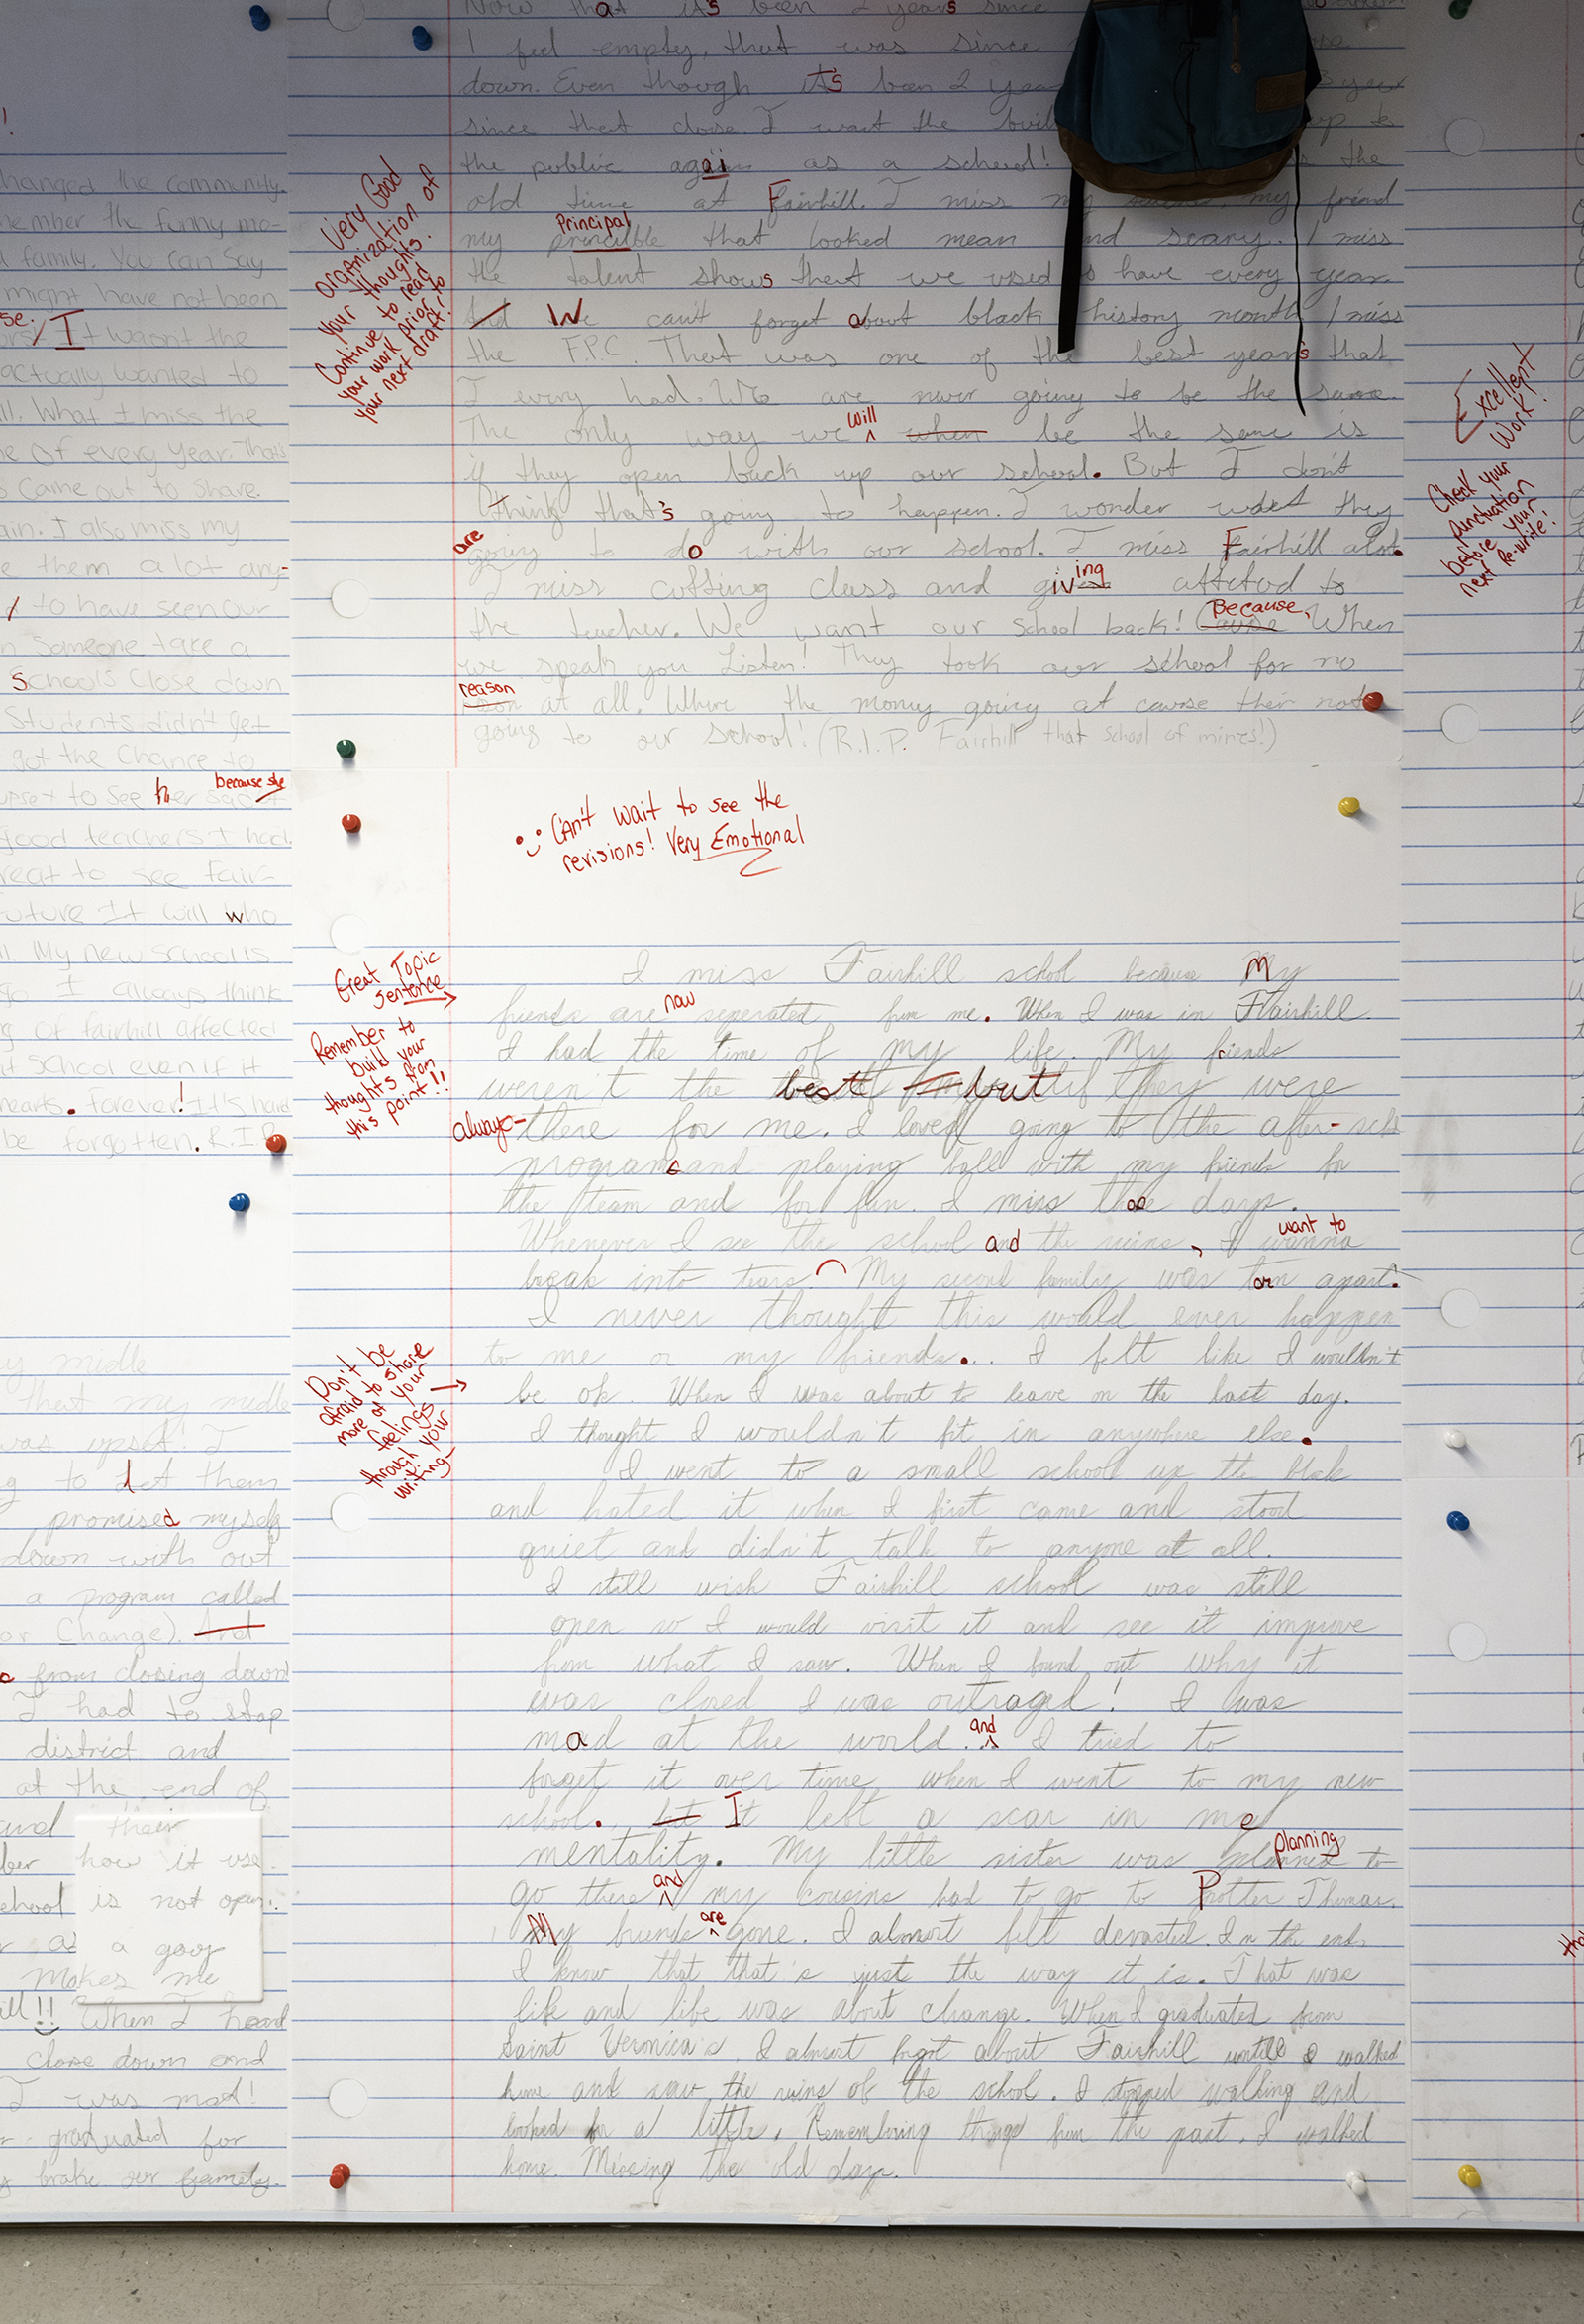 Now that it's been 2 years since
I feel empty, that was since
down. Even though it's been 2
since that close. I want the
the public again as a school! the
old time at Fairhill. I miss my my friend
Principal
my princible that looked mean and scary. I miss
the talent shows that we used to have every year.
And We can't forget about black history month I miss
the F.P.C. That was one of the best years that
I every had. We are never going to be the same.
will
The only way we ^ when be the same is
if they open back up our school. But I don't
think that's going to happen. I wonder what they
are
going to do with our school. I miss Fairhill alot.
ing
I miss cutting class and giv attetud to
Because,
the teacher. We want our school back! Cause When
we speak you Listen! They took our school for no
reason
at all. Where the money going at cause their not
going to our school! (R.I.P. Fairhill that school of mines!)
Very Good
organization of
your thoughts.
Continue to read
your work prior to
your next draft!
Can't wait to see the
revisions! Very Emotional
Great Topic
Sentence
Remember to
build your
thoughts from
this point!!
Don't be
afraid to share
more of your
feelings
through your
writing
I miss Fairhill school because My
now
friends are seperated from me. When I was in Fairhill
I had the time of my life. My friends
weren't the best but they were
always there for me. I loved going to the after-sch
programs and playing ball with my friends for
the team and for fun. I miss those days.
want to
Whenever I see the school and the ruins, I wanna
break into tears. My second family was torn apart.
I never thought this would ever happen
to me or my friends... I felt like I wouldn't
be ok. When I was about to leave on the last day.
I thought I wouldn't fit in anywhere else.
I went to a small school up the block
and hated it when I first came and stood
quiet and didn't talk to anyone at all.
I still wish Fairhill school was still
open so I would visit it and see it improve
from what I saw. When I found out why it
was closed I was outraged! I was
and
mad at the world. ^ I tried to
forget it over time when I went to my new
school. but It left a scar in me
planning
mentality. My little sister was planned to
and
go there ^ my cousins had to go to Potter Thomas.
are
My friends ^ gone. I almost felt devasted. In the end,
I know that that's just the way it is. That was
life and life was about change. When I graduated from
Saint Veronica's, I almost forgot about Fairhill untill I walked
home and saw the ruins of the school. I stopped walking and
looked for a little, Remembering things from the past, I walked
home. Missing the old days.
Excellent
Work!
Check your
punctuation
before your
next re-write!
!
changed the community.
remember the funny mo-
family. You can say
might have not been
se. / It wasn't the
actually wanted to
What I miss the
of every year. Thats
came out to share.
I also miss my
them a lot any-
to have seen our
Someone take a
Schools Close down
Students didn't get
got the Chance to
because she
upset to see her
good teachers I had.
great to see Fair-
future It will who
My new school is
go I always think
of fairhill affected
School even if it
hearts. Forever! It's hard
be forgotten. R.I.P.
my middle
that my middle
was upset! I
to let them
promised myself
down with out
a program called
or Change). And
from closing down
I had to stop
district and
at the end of
and their
how it use
school is not open.
a good
makes me
!! When I heard
close down and
I was mad!
graduated for
brake our family.